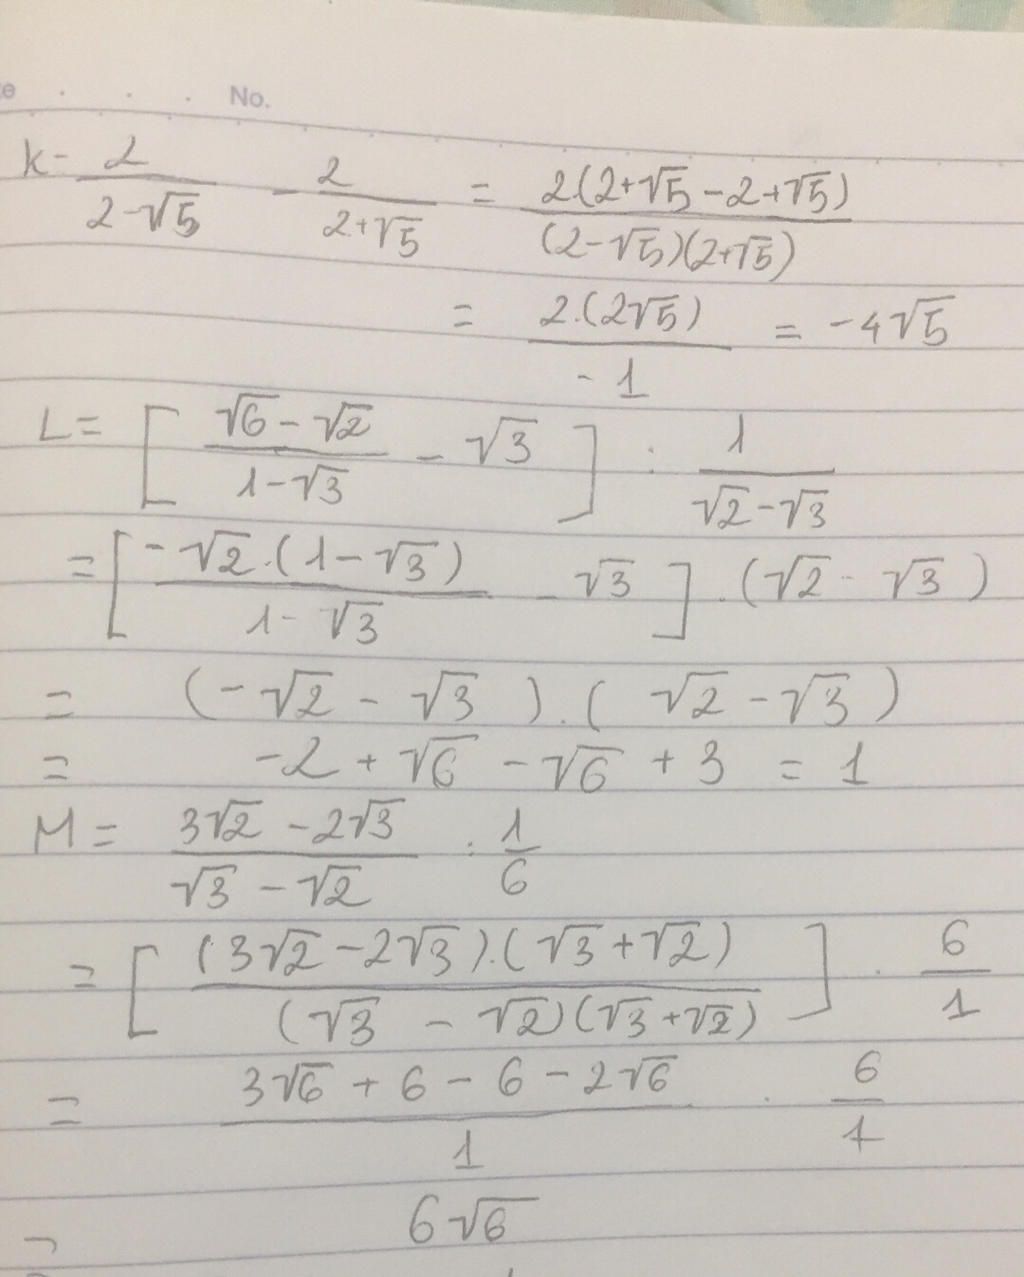 No.
K = \frac{2}{2-\sqrt{5}} - \frac{2}{2+\sqrt{5}} = \frac{2.(2+\sqrt{5}-2+\sqrt{5})}{(2-\sqrt{5})(2+\sqrt{5})}
= \frac{2.(2\sqrt{5})}{-1} = -4\sqrt{5}
L = [\frac{\sqrt{6}-\sqrt{2}}{1-\sqrt{3}} - \sqrt{3}] : \frac{1}{\sqrt{2}-\sqrt{3}}
= [\frac{-\sqrt{2}.(1-\sqrt{3})}{1-\sqrt{3}} - \sqrt{3}] . (\sqrt{2}-\sqrt{3})
= (-\sqrt{2}-\sqrt{3}).(\sqrt{2}-\sqrt{3})
= -2+\sqrt{6}-\sqrt{6}+3 = 1
M = \frac{3\sqrt{2}-2\sqrt{3}}{\sqrt{3}-\sqrt{2}} : \frac{1}{6}
= [\frac{(3\sqrt{2}-2\sqrt{3}).(\sqrt{3}+\sqrt{2})}{(\sqrt{3}-\sqrt{2})(\sqrt{3}+\sqrt{2})}] . \frac{6}{1}
= \frac{3\sqrt{6}+6-6-2\sqrt{6}}{1} . \frac{6}{1}
= 6\sqrt{6}